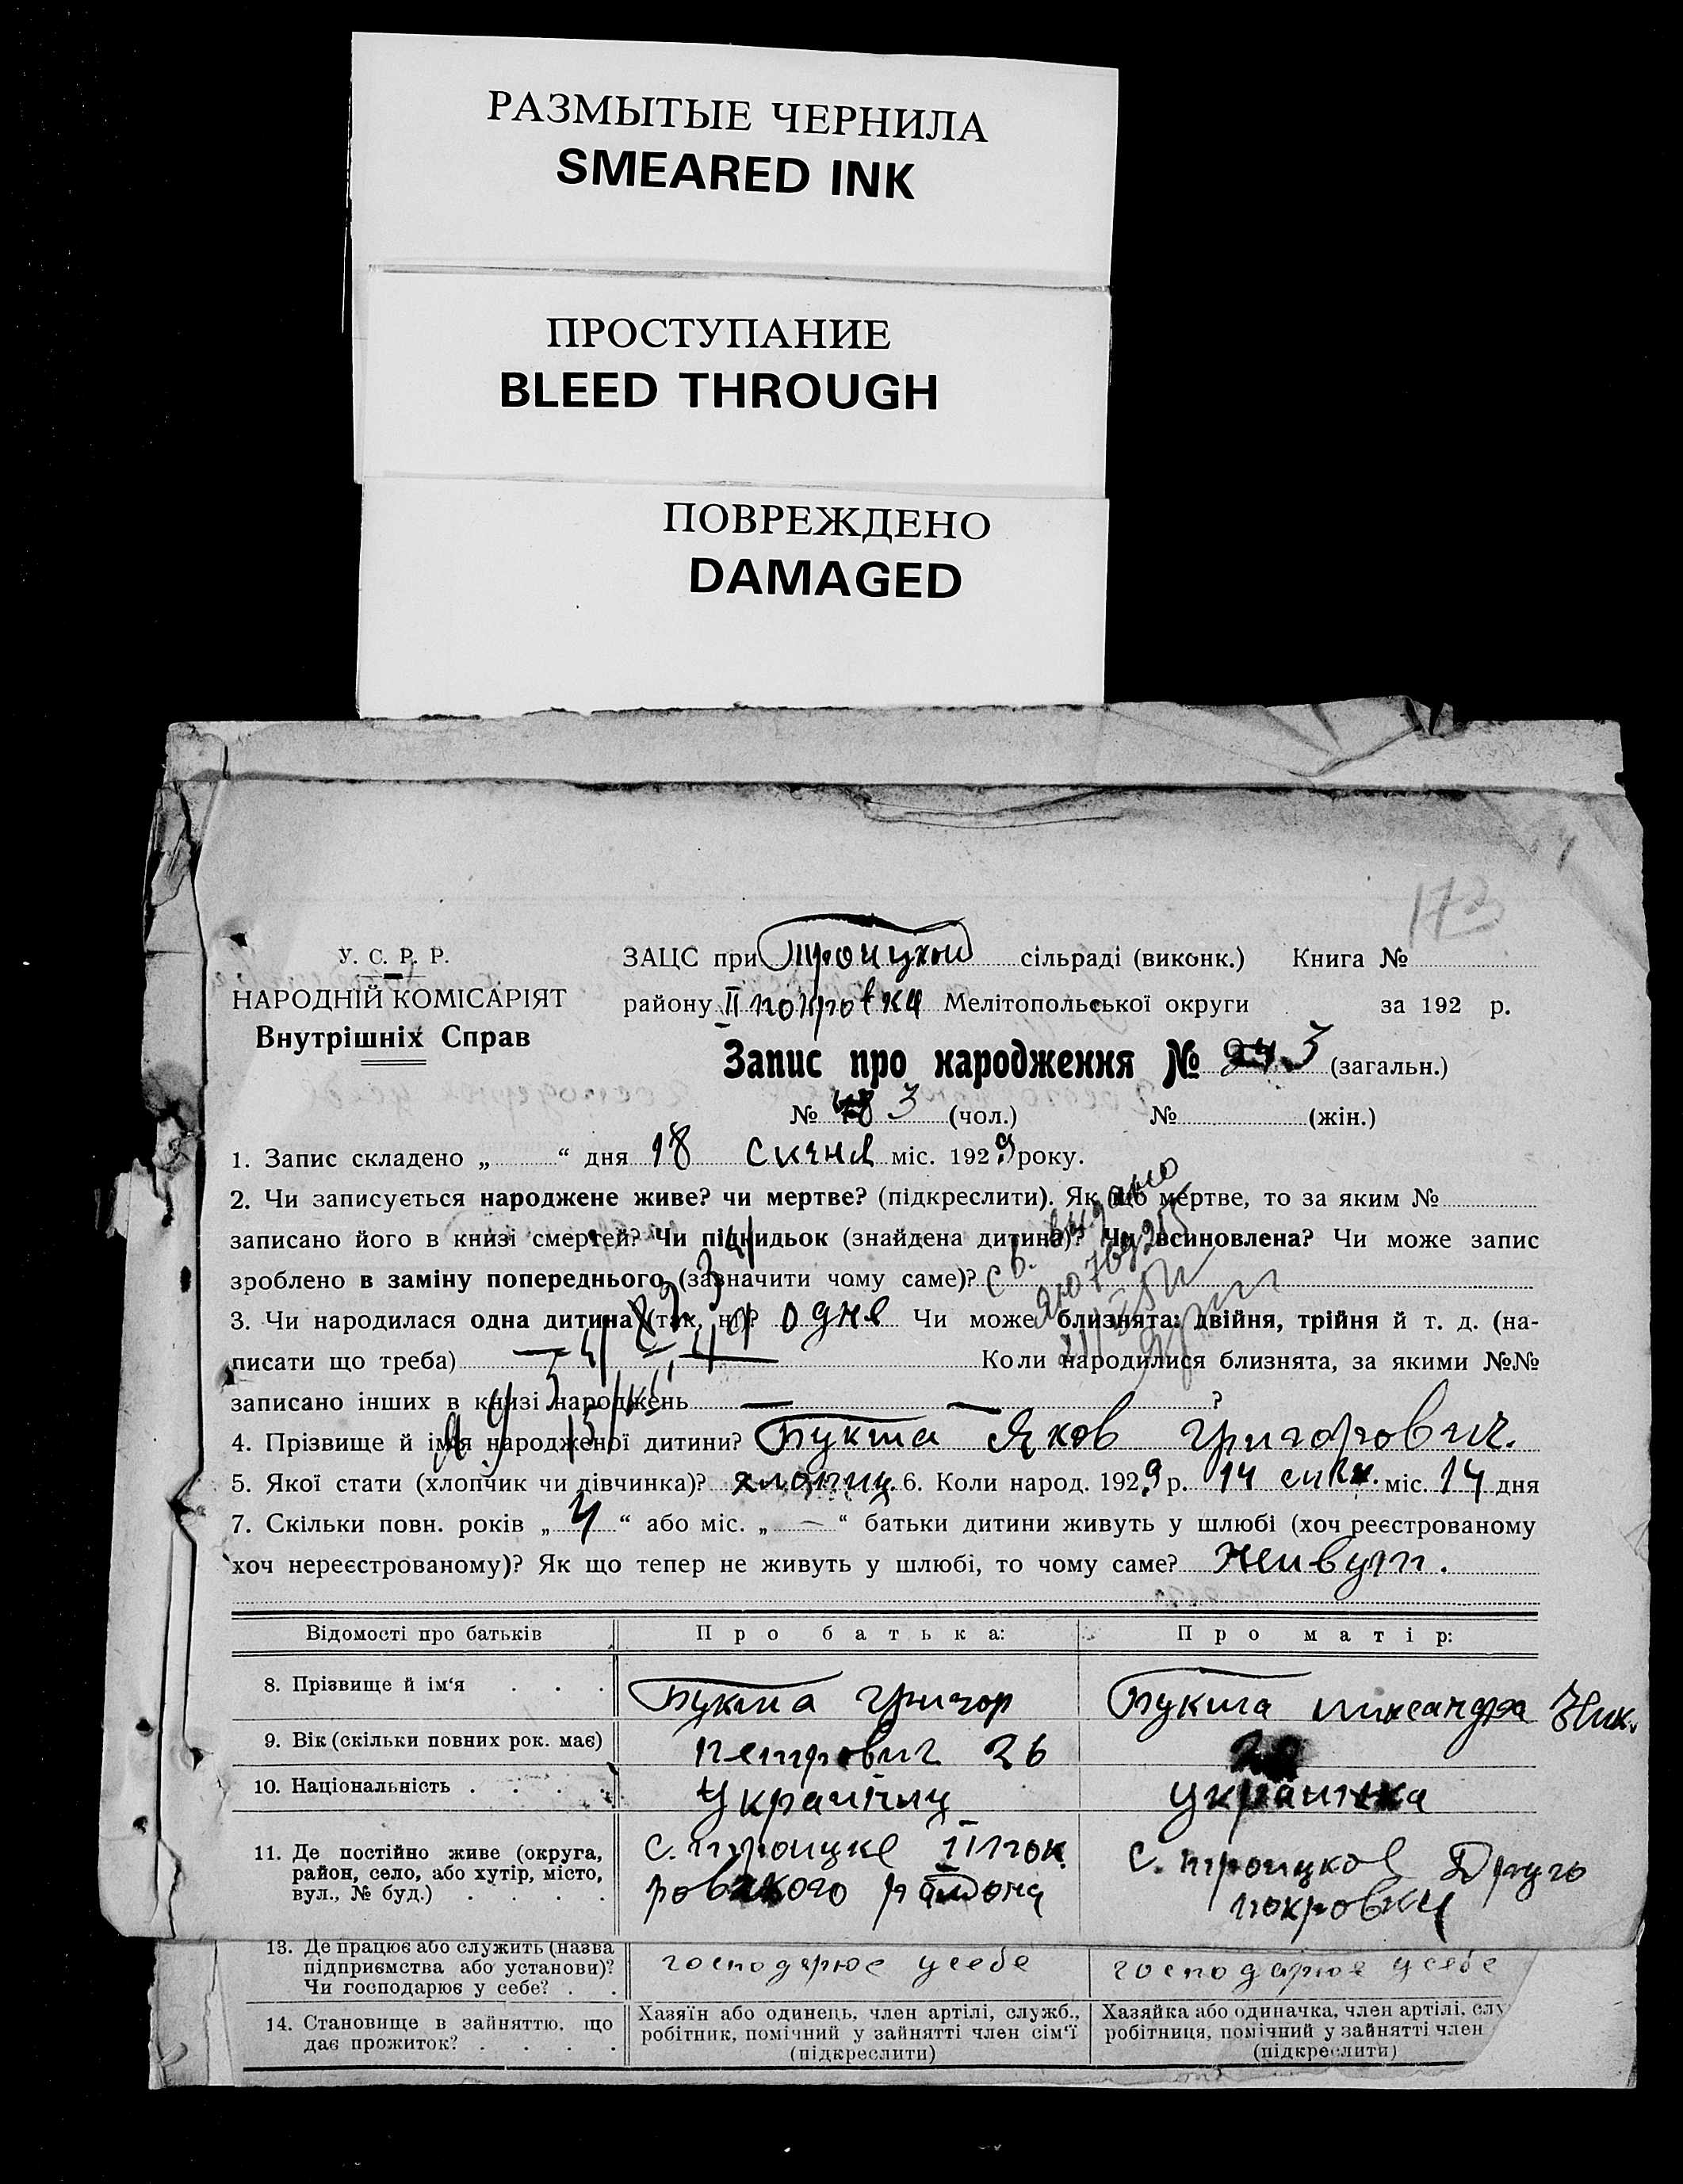 РАЗМЫТЫЕ ЧЕРНИЛА
SMEARED INK
ПРОСТУПАНИЕ
BLEED THROUGH
ПОВРЕЖДЕНО
DAMAGED
173
У. С. Р. Р.
НАРОДНІЙ КОМІСАРІЯТ
Внутрішніх Справ
ЗАЦС при Троицкой сільраді (виконк.) Книга №
району ІІ покровки Мелітопольської округи за 192 р.
Запис про народження № 3 (загальн.)
№ 3 (чол.) № (жін.)
1. Запис складено „ “ дня 18 сичня міс. 1929 року.
2. Чи записується народжене живе? чи мертве? (підкреслити). Як що мертве, то за яким №
записано його в книзі смертей? Чи підкидьок (знайдена дитина)? Чи всиновлена? Чи може запис
зроблено в заміну попереднього (зазначити чому саме)?
3. Чи народилася одна дитина (так, ні)? одна Чи може близнята: двійня, трійня й т. д. (на-
писати що треба) Коли народилися близнята, за якими №№
записано інших в книзі народжень — — ?
4. Прізвище й ім'я народженої дитини? Букта Яков Григорович.
5. Якої стати (хлопчик чи дівчинка)? хлопиц. 6. Коли народ. 1929 р. 14 сичн. міс. 14 дня
7. Скільки повн. років „ 4 “ або міс. „ — “ батьки дитини живуть у шлюбі (хоч реєстрованому
хоч нереєстрованому)? Як що тепер не живуть у шлюбі, то чому саме? Живут.
Відомості про батьків Про батька: Про матір:
8. Прізвище й ім'я . . . Букта Григор Букта
9. Вік (скільки повних рок. має) петрович 26
10. Національність . . . . Украинец украинка
11. Де постійно живе (округа,
район, село, або хутір, місто,
вул., № буд.) . . . .
с. троицке ІІ пок
ровского района
с. троицкое Друго
покровки
13. Де працює або служить (назва
підприємства або установи)?
Чи господарює у себе? . .
господарює усебе
господарює усебе
14. Становище в зайняттю, що
дає прожиток? . . . .
Хазяїн або одинець, член артілі, служб.,
робітник, помічний у зайнятті член сім'ї
(підкреслити)
Хазяйка або одиначка, член артілі, слу
робітниця, помічний у зайнятті член
(підкреслити)